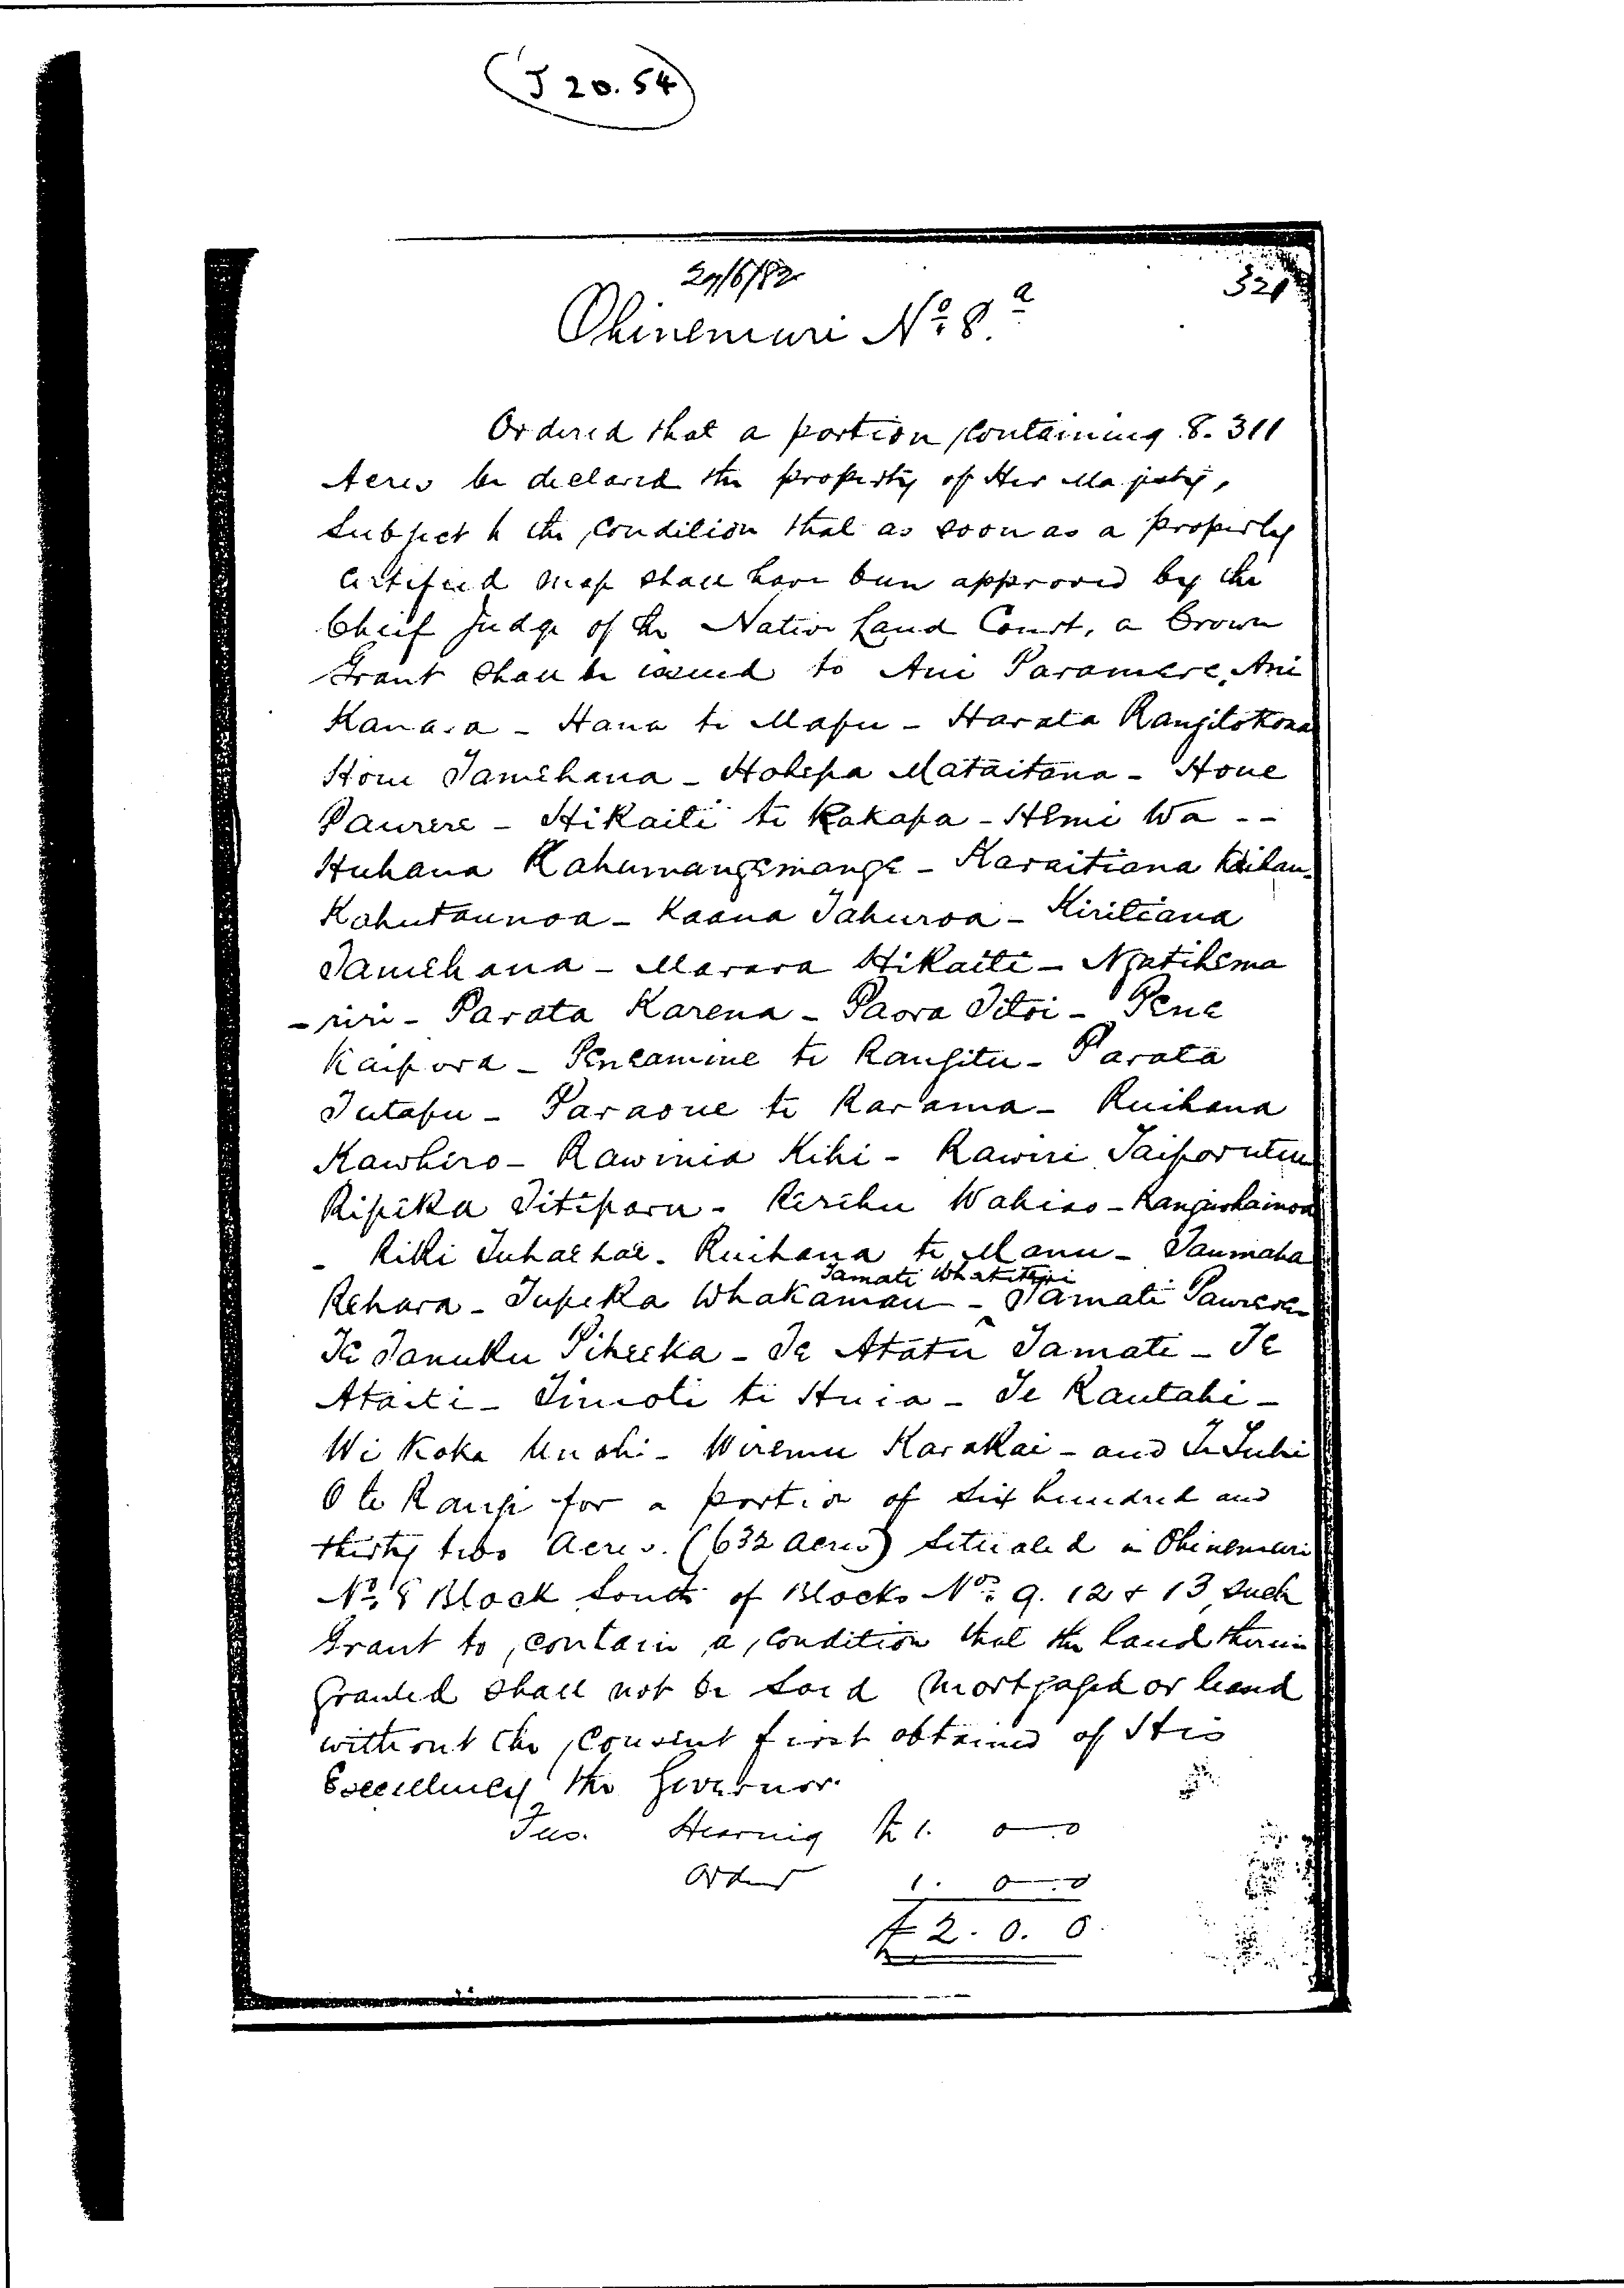 J 20.54
29/6/82
321
Ohinemuri No. 8.a
Ordered that a portion containing 8.311
Acres be declared the property of Her Majesty,
Subject to the Condition that as soon as a properly
Certified Map shall have been approved by the
Chief Judge of the Native Land Court, a Crown
Grant shall be issued to Ani Paramere, Ani
Kanara - Hana te Mapu - Harata Rangitokona
Hone Tamihana - Hohepa Mataitana - Hone
Paurere - Hikaiti te Kakapa - Hemi Wa --
Huhana Kahumangemange - Karaitiana Kaihau -
Kahutaunoa - Kaana Tahuroa - Kiritiana
Tamihana - Marara Hikaiti - Ngatihema
- riri - Parata Karena - Paora Titoi - Pene
Kaipora - Peneamine te Rangitu - Parata
Tutapu - Paraone te Karama - Ruihana
Kawhero - Rawinia Kihi - Rawiri Taiporutu
Ripeka Titiparu - Rerehu Wahieo - Rangiwhainoa
- Rikki Tuhaehae - Ruihana te Manu - Taumaha
Tamati Whatitiri
Rehara - Tupeka Whakamau - Tamati Paurere
Te Tanuku Piheeka - Te Atatu Tamati - Te
Ataiti - Timoti te Huia - Te Rautahi -
Wi Koka - Wiremu Karakai - and Te Tuhi
O te Rangi for a portion of Six hundred and
thirty two Acres. (632 Acres) Situated in Ohinemuri
No. 8 Block South of Blocks Nos. 9. 12 & 13 such
Grant to contain a condition that the land therein
Granted shall not be Sold Mortgaged or leased
without the Consent first obtained of His
Excellency the Governor.
Fees. Hearing £1. 0-.0
Order 1. 0-.0
£2. 0. 0